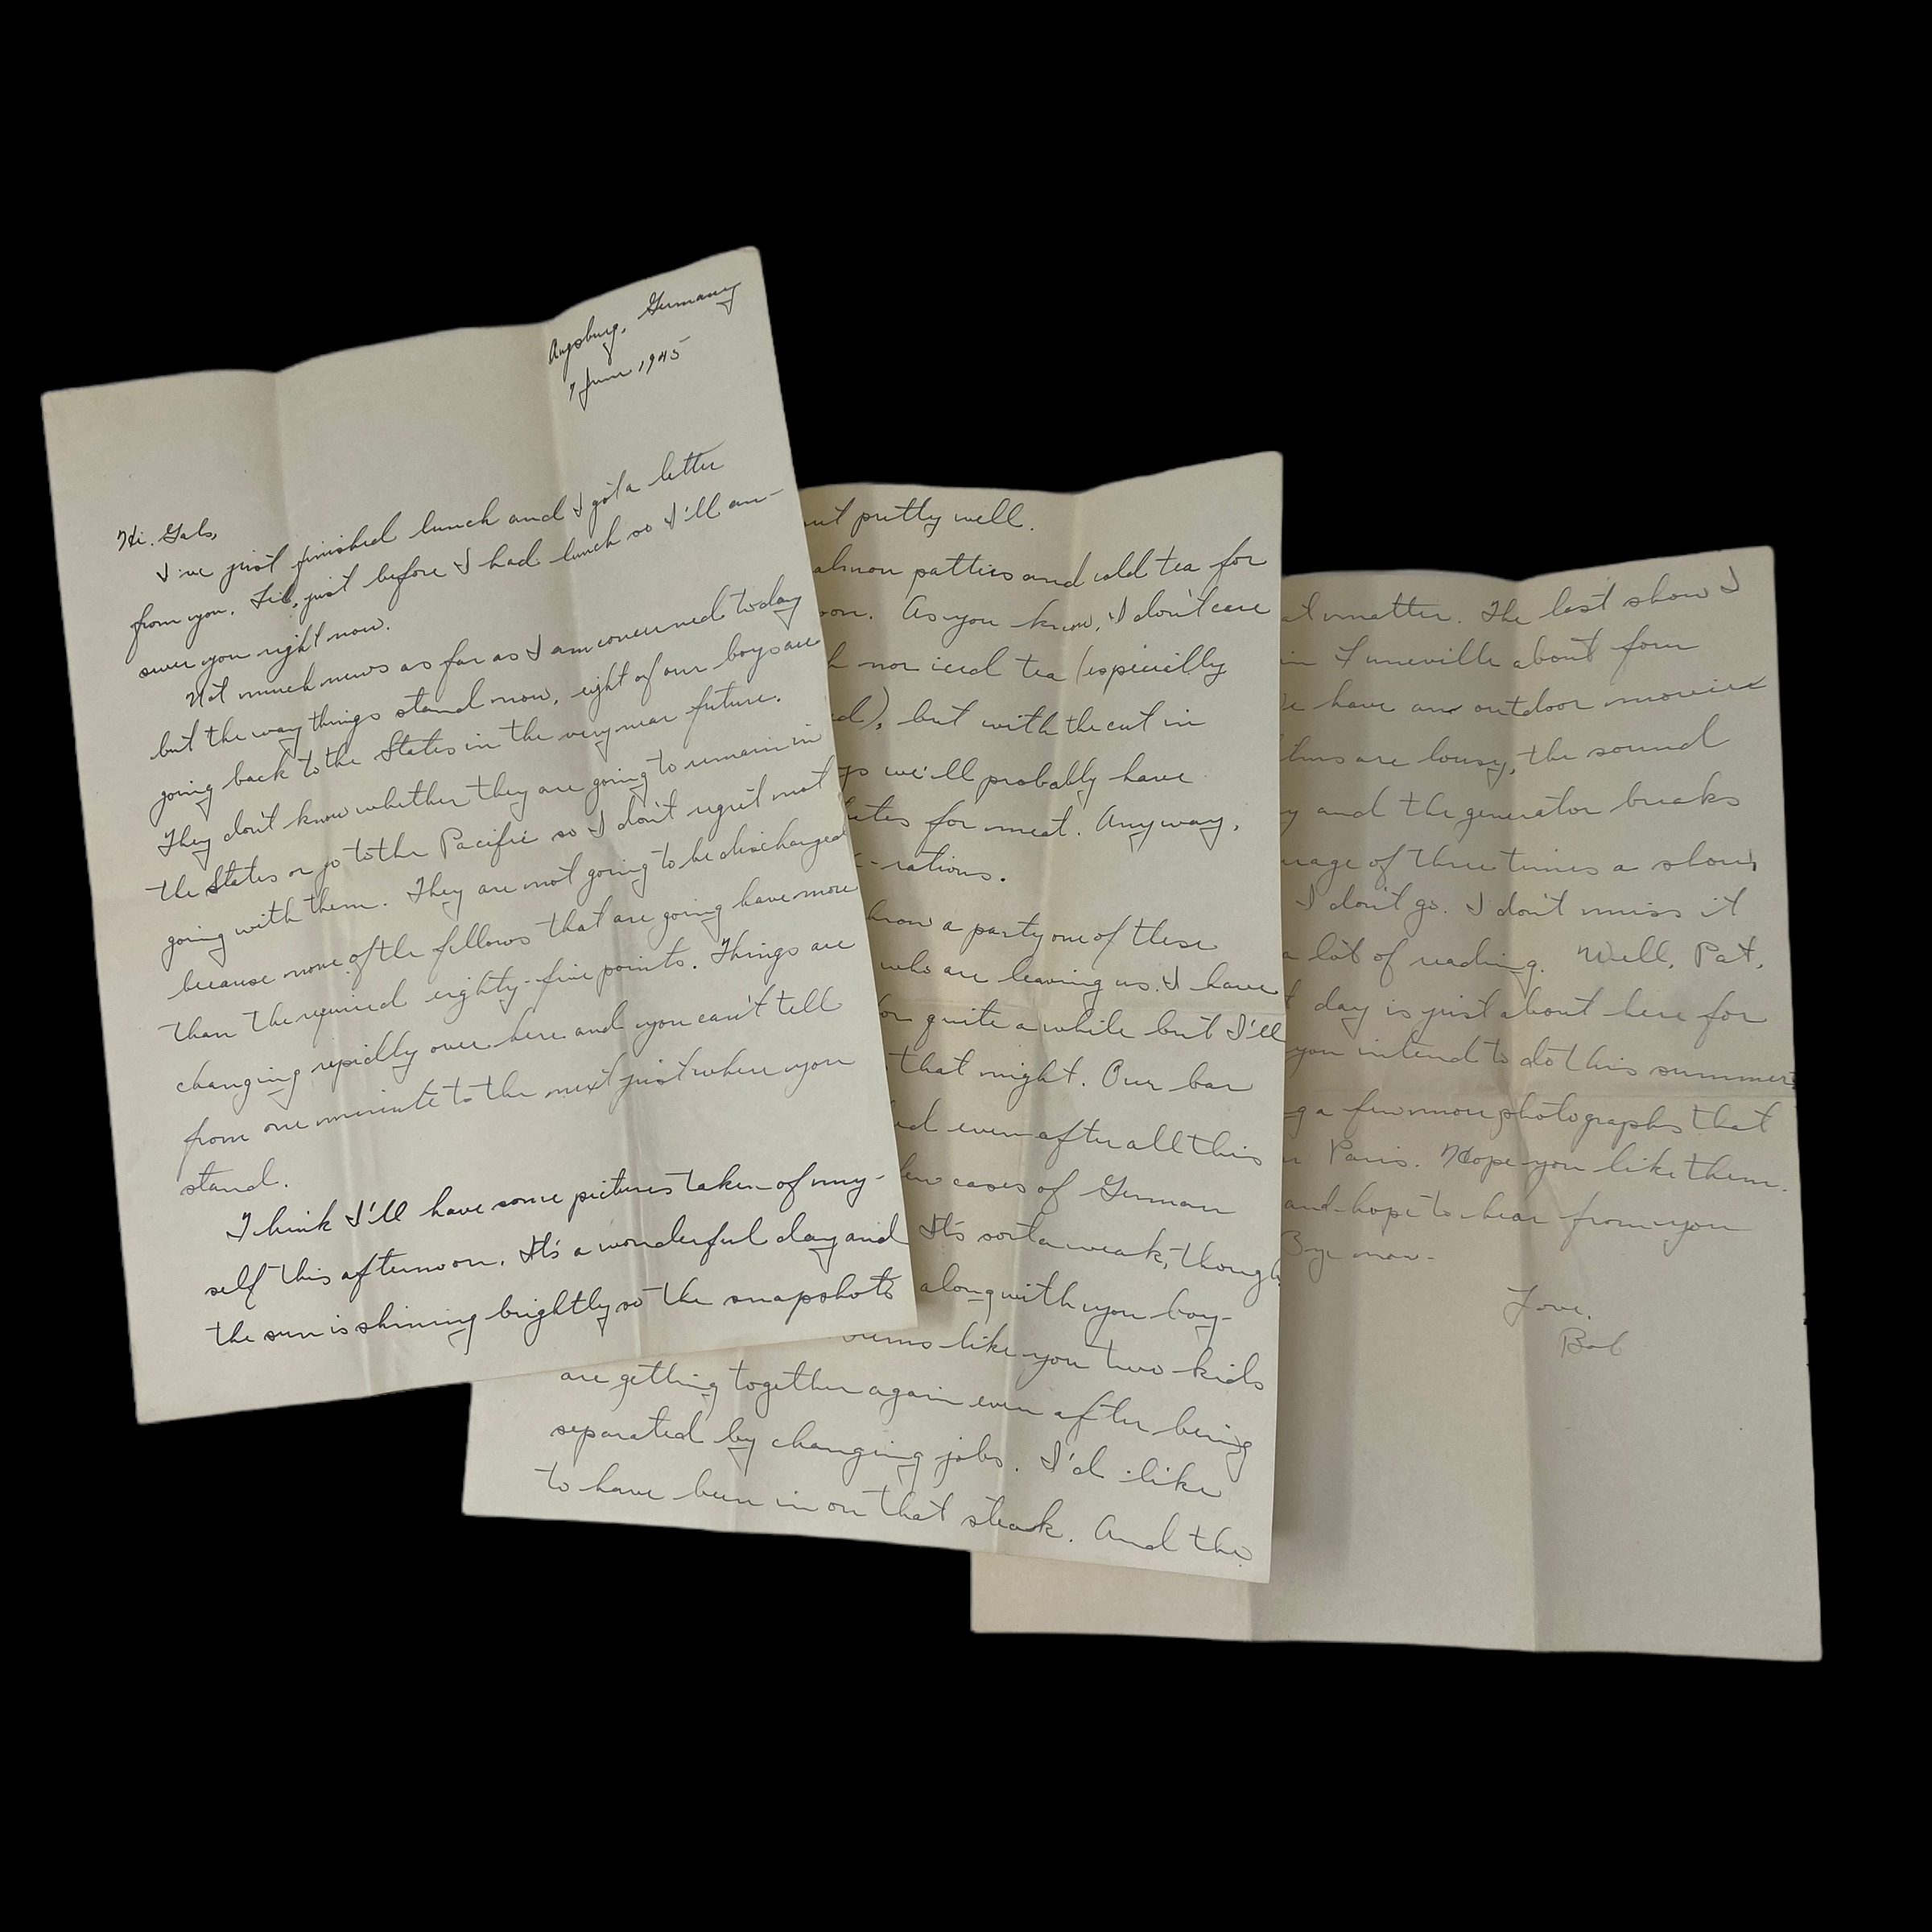 Augsburg, Germany
7 June 1945
Hi. Gals,
I've just finished lunch and I got a letter
from you, Sis, just before I had lunch so I'll an-
swer you right now.
Not much news as far as I am concerned today
but the way things stand now, eight of our boys are
going back to the States in the very near future.
They don't know whether they are going to remain in
the States or go to the Pacific so I don't regret not
going with them. They are not going to be discharged
because none of the fellows that are going have more
than the required eighty-five points. Things are
changing repidly over here and you can't tell
from one minute to the next just where you
stand.
Think I'll have some pictures taken of my-
self this afternoon. It's a wonderful day and
the sun is shining brightly so the snapshots
out pretty well.
almon patties and cold tea for
oon. As you know, I don't care
nor iced tea (especially
ed), but with the cut in
ys we'll probably have
utes for meat. Anyway,
-rations.
hrow a party one of these
who are leaving us. I have
for quite a while but I'll
that night. Our bar
ed even after all this
few cases of German
It's sorta weak, though
along with you boy-
seems like you two kids
are getting together again even after being
separated by changing jobs. I'd like
to have been in on that steak. And the
at matter. The last show I
in Luneville about four
We have an outdoor movies
films are lousy, the sound
y and the generator breaks
rage of three times a show,
I don't go. I don't miss it
a lot of reading. Well, Pat,
t day is just about here for
you intend to do this summer?
g a few more photographs that
n Paris. Hope you like them.
and hope to hear from you
Bye now-
Love,
Bob